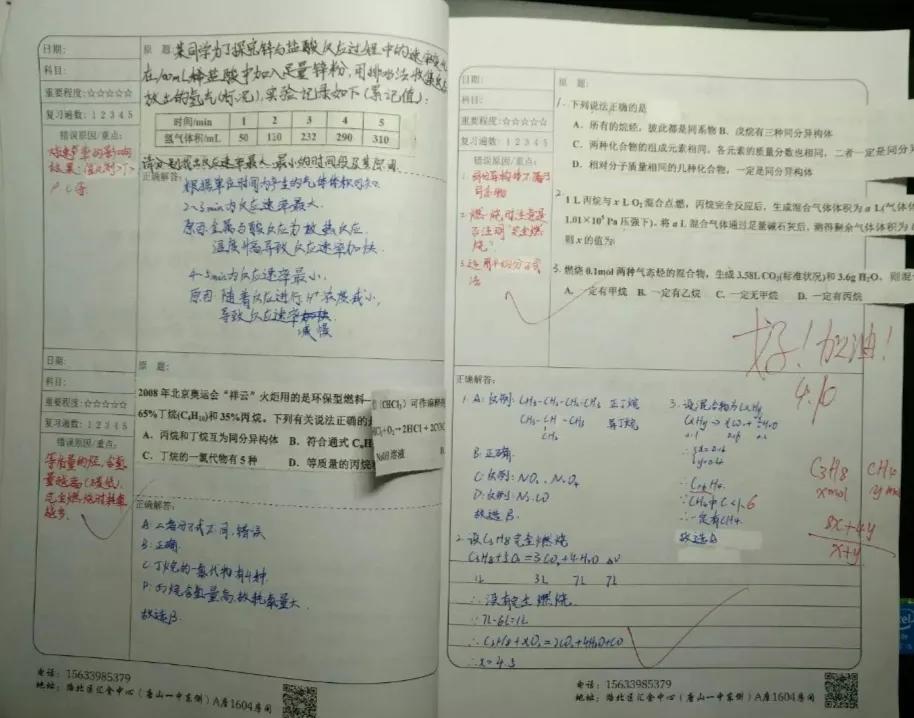 日期:
科目:
重要程度:☆☆☆☆☆
复习遍数: 1 2 3 4 5
错误原因/重点:
原 题: 某同学为了探究锌与盐酸反应过程中的速率变化
在100mL稀盐酸中加入足量锌粉,用排水法收集反应
放出的氢气(标况),实验记录如下(累记值):
时间/min 1 2 3 4 5
氢气体积/mL 50 120 232 290 310
正确解答:
根据单位时间内产生的气体体积可知
2~3min内反应速率最大.
原因:金属与酸反应为放热反应
温度升高导致反应速率加快.
4~5min内反应速率最小.
原因:随着反应进行H⁺浓度减小,
导致反应速率
减慢
日期:
科目:
重要程度:☆☆☆☆☆
复习遍数: 1 2 3 4 5
错误原因/重点:
等质量的烃,含氢
完全燃烧时耗氧
越多.
原 题:
2008年北京奥运会“祥云”火炬用的是环保型燃料—
65%丁烷(C₄H₁₀)和35%丙烷。下列有关说法正确的是
A.丙烷和丁烷互为同分异构体 B.符合通式
C.丁烷的一氯代物有5种 D.等质量的丙烷
(CHCl₃)可作麻醉
HCl₃+O₂→2HCl+2COC
NaOH溶液 B.
正确解答:
A:二者分子式不同,错误
B:正确.
C:丁烷的一氯代物有4种.
D:丙烷含氢量高,故耗氧量大.
故选B.
电话: 15633985379
地址: 路北区汇金中心(唐山一中东侧)A座1604房间
日期:
科目:
重要程度:☆☆☆☆☆
复习遍数: 1 2 3 4 5
错误原因/重点:
1.同分异构体不属于
同系物
2.燃烧时注意是
否注明“完全燃
烧”
3.运用平均分子式
法
原 题:
1. 下列说法正确的是
A.所有的烷烃,彼此都是同系物 B.戊烷有三种同分异构体
C.两种化合物的组成元素相同,各元素的质量分数也相同,二者一定是同分
D.相对分子质量相同的几种化合物,一定是同分异构体
2. 1 L丙烷与x L O₂混合点燃,丙烷完全反应后,生成混合气体体积为a L(气体体
1.01×10⁵ Pa压强下),将a L混合气体通过足量碱石灰后,测得剩余气体体积为
则x的值为:
3. 燃烧0.1mol两种气态烃的混合物,生成3.58L CO₂(标准状况)和3.6g H₂O,则混
A.一定有甲烷 B.一定有乙烷 C.一定无甲烷 D.一定有丙烷
好!加油!
4.10
正确解答:
1. A:反例: CH₃-CH₂-CH₂-CH₃ 正丁烷
CH₃-CH-CH₃ 异丁烷
CH₃
B:正确.
C:反例:NO₂、N₂O₄
D:反例:N₂、CO
故选B.
2.设C₃H₈完全燃烧
C₃H₈+5O₂=3CO₂+4H₂O ΔV
1L 3L 7L 7L
∴没有完全燃烧.
∵7L-6L=1L
∴C₃H₈+xO₂=2CO₂+4H₂O+CO
∴x=4.5
3.设混合物为CxHy
CxHy→xCO₂+y/2H₂O
∴一定有CH₄.
故选A
C₃H₈ CH₄
xmol ymol
8x+4y
x+y
电话: 15633985379
地址: 路北区汇金中心(唐山一中东侧)A座1604房间